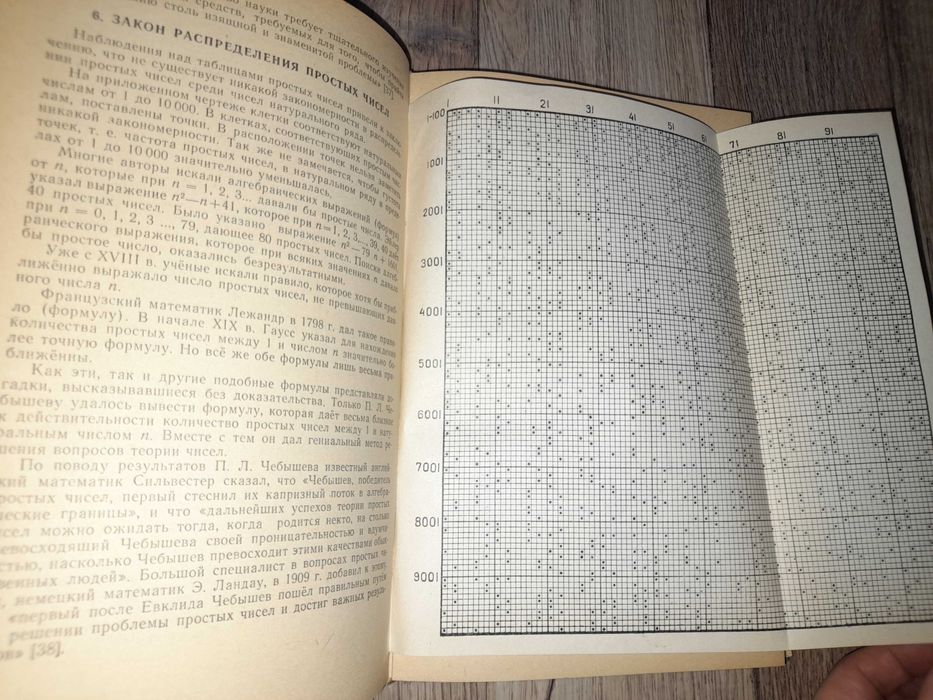 науки требует тщательного изучения
средств, требуемых для того, чтобы
столь изящной и знаменитой проблемы» [37].
6. ЗАКОН РАСПРЕДЕЛЕНИЯ ПРОСТЫХ ЧИСЕЛ
Наблюдения над таблицами простых чисел привели к заклю-
чению, что не существует никакой закономерности в распределе-
нии простых чисел среди чисел натурального ряда.
На приложенном чертеже клетки соответствуют натуральным
числам от 1 до 10 000. В клетках, соответствующих простым чис-
лам, поставлены точки. В расположении точек нельзя заметить
никакой закономерности. Так же не замечается, чтобы густота
точек, т. е. частота простых чисел, в натуральном ряду в преде-
лах от 1 до 10 000 значительно уменьшалась.
Многие авторы искали алгебраических выражений (формул)
от n, которые при n = 1, 2, 3... давали бы простые числа. Эйлер
указал выражение n²—n+41, которое при n=1, 2, 3,..., 39, 40 даёт
40 простых чисел. Было указано выражение n²—79 n + 1601
при n = 0, 1, 2, 3 ..., 79, дающее 80 простых чисел. Поиски алгеб-
раического выражения, которое при всяких значениях n давало
бы простое число, оказались безрезультатными.
Уже с XVIII в. учёные искали правило, которое хотя бы приб-
лижённо выражало число простых чисел, не превышающих дан-
ного числа n.
Французский математик Лежандр в 1798 г. дал такое прави-
ло (формулу). В начале XIX в. Гаусс указал для нахождения
количества простых чисел между 1 и числом n значительно бо-
лее точную формулу. Но всё же обе формулы лишь весьма при-
ближённы.
Как эти, так и другие подобные формулы представляли до-
гадки, высказывавшиеся без доказательства. Только П. Л. Че-
бышеву удалось вывести формулу, которая даёт весьма близкое
к действительности количество простых чисел между 1 и нату-
ральным числом n. Вместе с тем он дал гениальный метод ре-
шения вопросов теории чисел.
По поводу результатов П. Л. Чебышева известный англий-
ский математик Сильвестер сказал, что «Чебышев, победитель
простых чисел, первый стеснил их капризный поток в алгебра-
ические границы», и что «дальнейших успехов теории простых
чисел можно ожидать тогда, когда родится некто, на столько
превосходящий Чебышева своей проницательностью и вдумчи-
востью, насколько Чебышев превосходит этими качествами обык-
новенных людей». Большой специалист в вопросах простых чи-
немецкий математик Э. Ландау, в 1909 г. добавил к этому,
«первый после Евклида Чебышев пошёл правильным путём
решении проблемы простых чисел и достиг важных резуль-
ов» [38].
1 11 21 31 41 51 61 71 81 91
1-100
1001
2001
3001
4001
5001
6001
7001
8001
9001